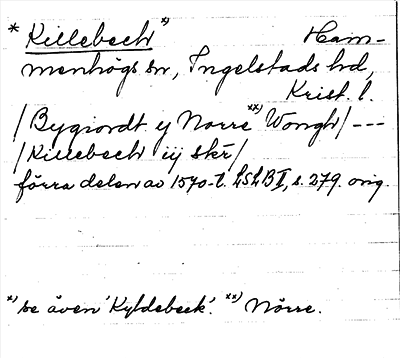 * Killebech *) Ham-
menhögs sn, Ingelstads hd,
Krist. l.
/ Bygiordt ij Norre **) Wongh / ---
/ Killebech iij skr /
förra delen av 1570-t. LSLB I, s. 279. orig.
*) se även 'Kyldebeck'. **) Nörre.